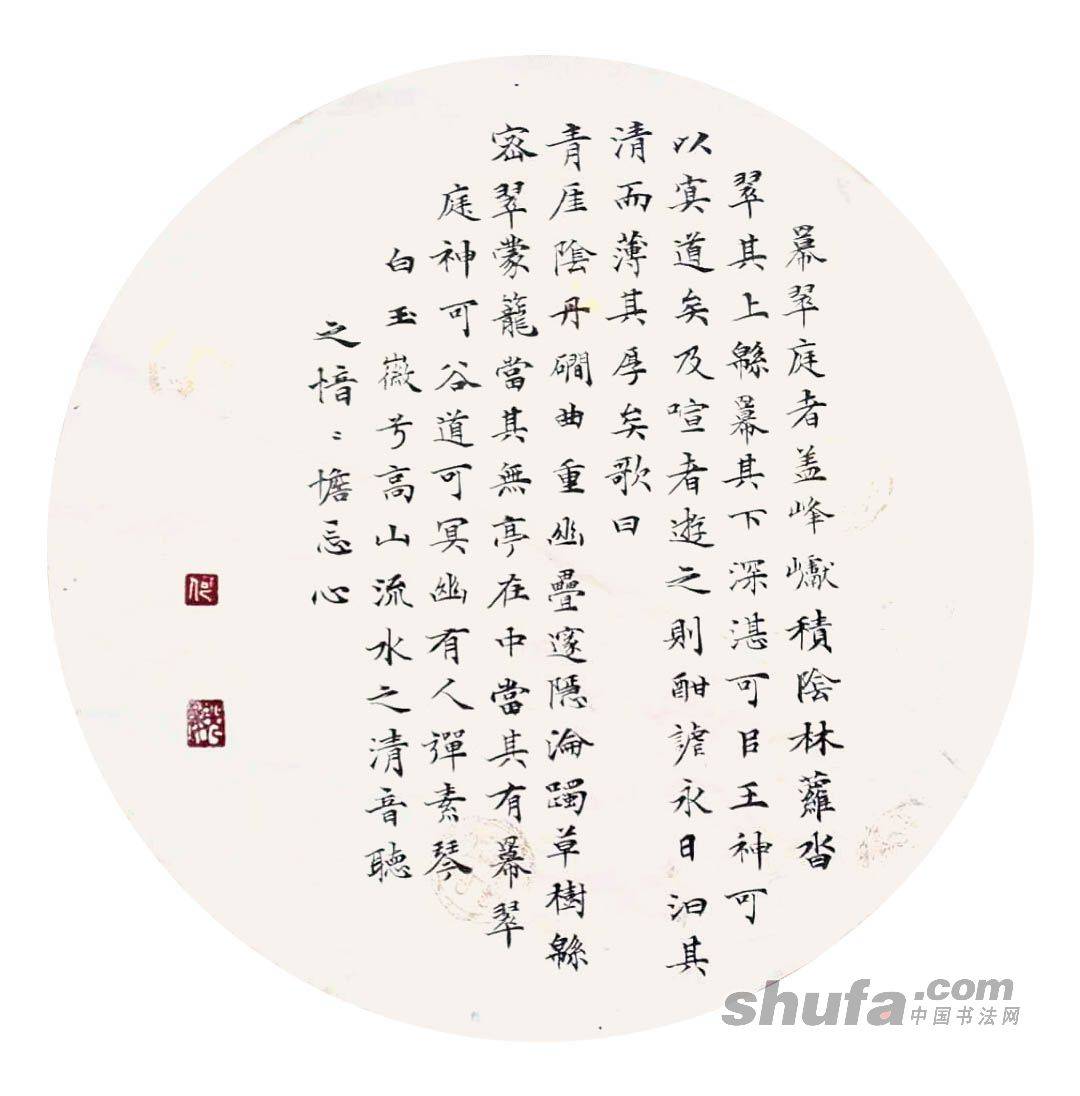 冪翠庭者盖峰巘積陰林蘿沓
翠其上緜冪其下深湛可㠯王神可
以寘道矣及喧者遊之則酣謔永日汩其
清而薄其厚矣歌曰
青厓陰丹磵曲重幽疊邃隱淪躅草樹緜
密翠蒙籠當其無亭在中當其有冪翠
庭神可谷道可冥幽有人彈素琴
白玉徽兮高山流水之清音聽
之愔〻憺忘心
shufa.com
中国书法网